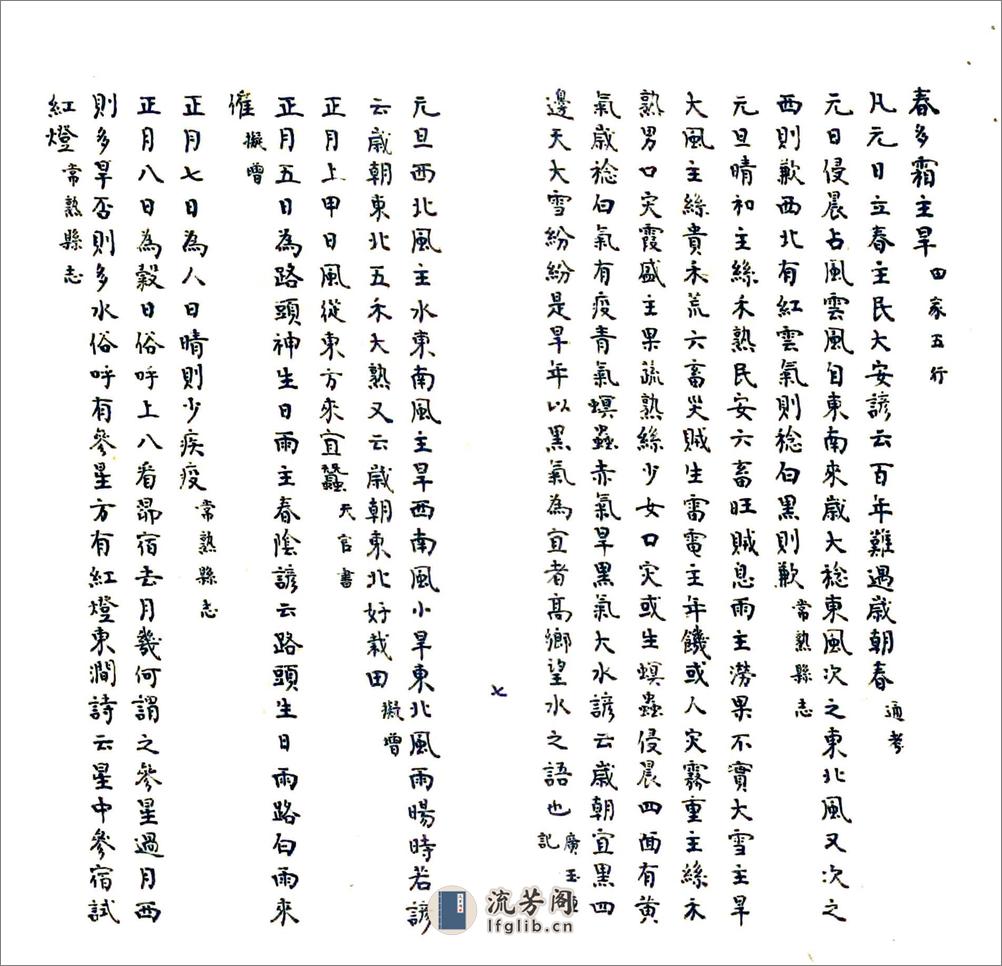 春多霜主旱 田家五行
凡元日立春主民大安諺云百年難遇歲朝春 通考
元日侵晨占風雲風自東南來歲大稔東風次之東北風又次之
西則歉西北有紅雲氣則稔白黑則歉 常熟縣志
元旦晴和主絲禾熟民安六畜旺賊息雨主澇果不實大雪主旱
大風主絲貴禾荒六畜災賊生雷電主年饑或人災霧重主絲禾
熟男口災霞盛主果蔬熟絲少女口災或生螟蟲侵晨四面有黃
氣歲稔白氣有疫青氣螟蟲赤氣旱黑氣大水諺云歲朝宜黑四
邊天大雪紛紛是旱年以黑氣為宜者高鄉望水之語也 廣玉
記
七
元旦西北風主水東南風主旱西南風小旱東北風雨暘時若諺
云歲朝東北五禾大熟又云歲朝東北好栽田 擬增
正月上甲日風從東方來宜蠶 天官書
正月五日為路頭神生日雨主春陰諺云路頭生日雨路白雨來
催 擬增
正月七日為人日晴則少疾疫 常熟縣志
正月八日為穀日俗呼上八看昴宿去月幾何謂之參星過月西
則多旱否則多水俗呼有參星方有紅燈東澗詩云星中參宿試
紅燈 常熟縣志
流芳阁
lfglib.cn